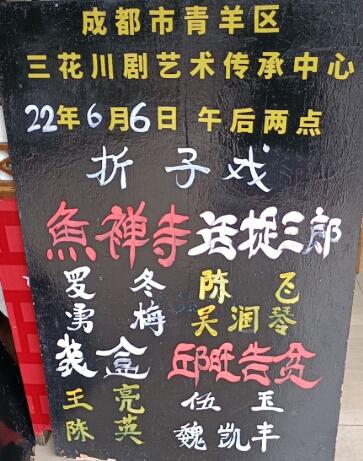 成都市青羊区
三花川剧艺术传承中心
22年6月6日 午后两点
折子戏
魚禅寺 活捉三郎
罗勇 冬梅 陈飞 吴润琴
装盒 邱旺告贫
王亮 陈英 伍玉 魏凯丰